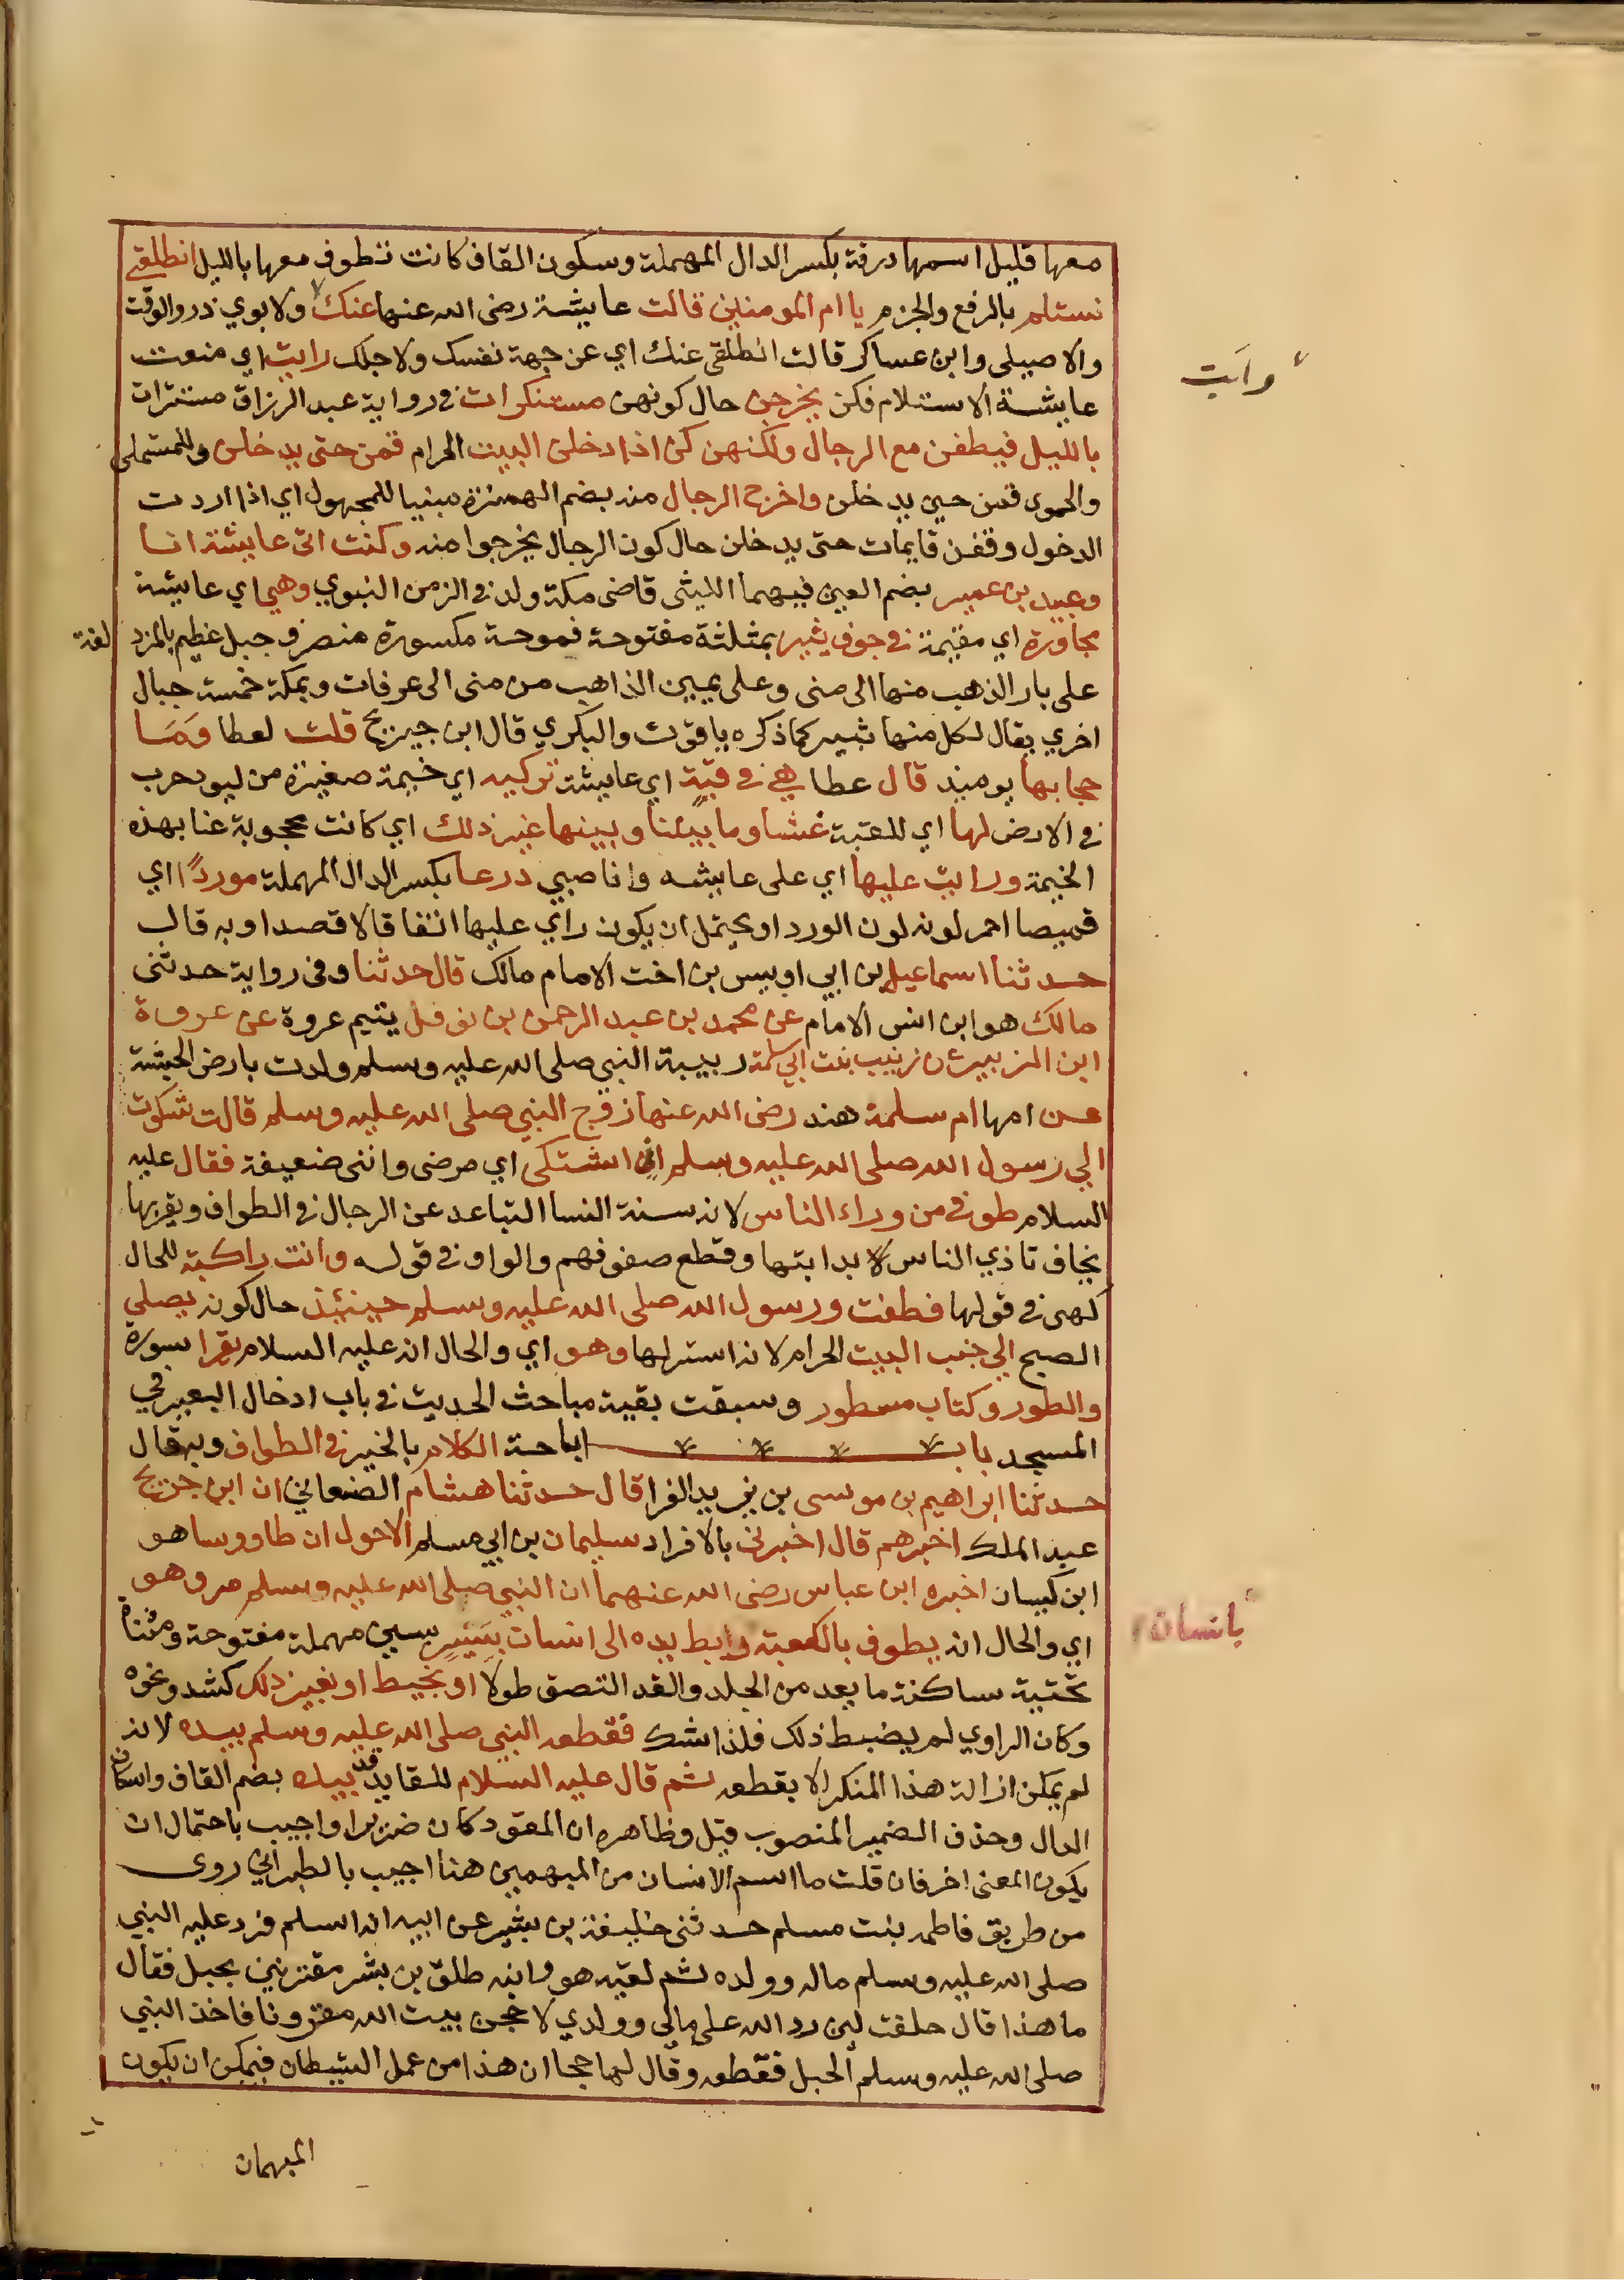 معها قليل اسمها درقة بكسر الدال المهملة وسكون القاف كانت تطوف معها بالليل انطلقي
نستلم بالرفع والجزم يا ام المومنين قالت عايشة رضى الله عنها عنك ولابوي ذر والوقت
والاصيلى وابن عساكر قالت انطلقى عنك اي عن جهة نفسك ولاجلك رابت اي منعت
وابَت
عايشة الاستلام فكن يخرجن حال كونهن مستنكرات فى رواية عبد الرزاق مستترات
بالليل فيطفن مع الرجال ولكنهن كن اذا دخلن البيت الحرام قمن حتى يدخلن وللمستملى
والحموى قمن حين يدخلن واخرج الرجال منه بضم الهمزة مبنيا للمجهول اي اذا اردت
الدخول وقفن قايمات حتى يدخلن حال كون الرجال يخرجوا منه وكنت اتى عايشة انا
وعبيد بن عمير بضم العين فيهما الليثى قاضى مكة ولد فى الزمن النبوي وهي اي عايشة
مجاورة اي مقيمة فى جوف يثبير بمثلثة مفتوحة فموحة مكسورة منصرف جبل عظيم بالمزد لفة
على بار الذهب منها الى منى وعلى يمين الذاهب من منى الى عرفات وبمكة خمسة جبال
اخري يقال لكل منها ثبير كما ذكره ياقوت والبكري قال ابن جريج قلت لعطا وَمَا
حجابها يوميذ قال عطا هي فى قبّة اي عايشة تركيه اي خيمة صغيرة من لبود حرب
فى الارض لها اي للقبة غشا وما بيننا وبينها غير ذلك اي كانت محجوبة عنا بهذه
الخيمة ورايت عليها اي على عايشه وانا صبي درعا بكسر الدال المهملة موردًا اي
قميصا احمر لونه لون الورد او يحتمل ان يكون راي عليها اتفاقا لا قصدا وبه قال
حدثنا اسماعيل بن ابي اويس بن اخت الامام مالك قال حدثنا وفى رواية حدثنى
مالك هو ابن انس الامام عن محمد بن عبد الرحمن بن نوفل يتيم عروة عن عروة
ابن الزبير عن زينب بنت ابي سلمة ربيبة النبي صلى الله عليه وسلم ولدت بارض الحبشة
عن امها ام سلمة هند رضى الله عنها زوج النبي صلى الله عليه وسلم قالت شكوت
الي رسول الله صلى الله عليه وسلم اني اشتكى اي مرضى واننى ضعيفة فقال عليه
السلام طوفى من وراء الناس لانه سنة النسا التباعد عن الرجال فى الطواف وبقربها
يخاف تاذي الناس بدابتها وقطع صفوفهم والواو فى قوله وانت راكبة للحال
كهى فى قولها فطفت ورسول الله صلى الله عليه وسلم حينئيذ حال كونه يصلي
الصبح الي جنب البيت الحرام لانه استر لها وهو اي والحال انه عليه السلام يقرا بسورة
والطور وكتاب مسطور وسبقت بقية مباحث الحديث فى باب ادخال البعير في
المسجد باب اباحة الكلام بالخير فى الطواف وبه قال
حدثنا ابراهيم بن موسى بن يزيد الفرا قال حدثنا هشام الصنعاني ان ابن جريج
عبد الملك اخبرهم قال اخبرنى بالافراد سليمان بن ابي مسلم الاحول ان طاووسا هو
ابن كيسان اخبره ابن عباس رضى الله عنهما ان النبي صلى الله عليه وسلم مر وهو
اي والحال انه يطوف بالكعبة رابط يده الى انسان بسَيْرٍ بسين مهملة مفتوحة ومثناة
بانسان
تحتية ساكنة ما يعد من الجلد والقد التصق طولا او بخيط او بغير ذلك كشد ونحوه
وكان الراوي لم يضبط ذلك فلذا شك فقطعه النبي صلى الله عليه وسلم بيده لانه
لم يمكن ازالة هذا المنكر الا بقطعه ثم قال عليه السلام للقايد قد بيده بضم القاف واسكان
الدال وحذف الضمير المنصوب قيل وظاهره ان المقود كان ضريرا واجيب باحتمال ان
يكون المعنى اخر فان قلت ما اسم الانسان من المبهمين هنا اجيب بالطبراني روى
من طريق فاطمه بنت مسلم حدثنى خليفة بن بشير عن ابيه انه اسلم فرد عليه النبي
صلى الله عليه وسلم ماله وولده ثم لقيه هو وابنه طلق بن بشر مقترنين بحبل فقال
ما هذا قال حلفت لين رد الله على مالى وولدي لاحجن بيت الله مقرونا فاخذ النبي
صلى الله عليه وسلم الحبل فقطعه وقال لهما حجا ان هذا من عمل الشيطان فيمكن ان يكون
المبهمان